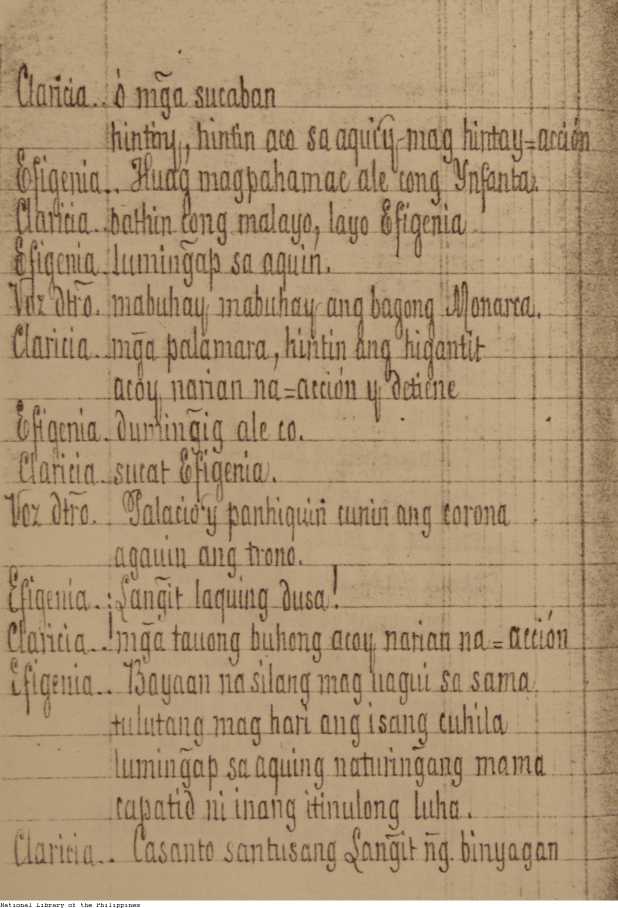 Claricia.. ó mg̃a sucaban
hintoy, hintin aco sa aquiŷ mag hintay=acción
Efigenia.. Huag magpahamac ale cong Ynfanta.
Claricia.. bathin cong malayo, layo Efigenia
Efigenia.. luming̃ap sa aquin.
Voz dtr̃o. mabuhay, mabuhay ang bagong Monarca.
Claricia.. mg̃a palamara, hintin ang higantit
acoy, narian na=acción y detiene
Efigenia. duming̃ig ale co.
Claricia. sucat Efigenia.
Voz dtr̃o. Palacio'y panhiquin̄ cunin ang corona
agauin ang trono.
Efigenia..: Lang̃it laquing dusa!
Claricia..! mg̃a tauong buhong acoy, narian na = acción
Efigenia.. Bayaan na silang mag uagui sa sama
tulutang mag hari ang isang cuhila
luming̃ap sa aquing naturing̃ang mama
capatid ni inang itinulong luha.
Claricia.. Casanto santusang Lang̃it ñg. binyagan
National Library of the Philippines